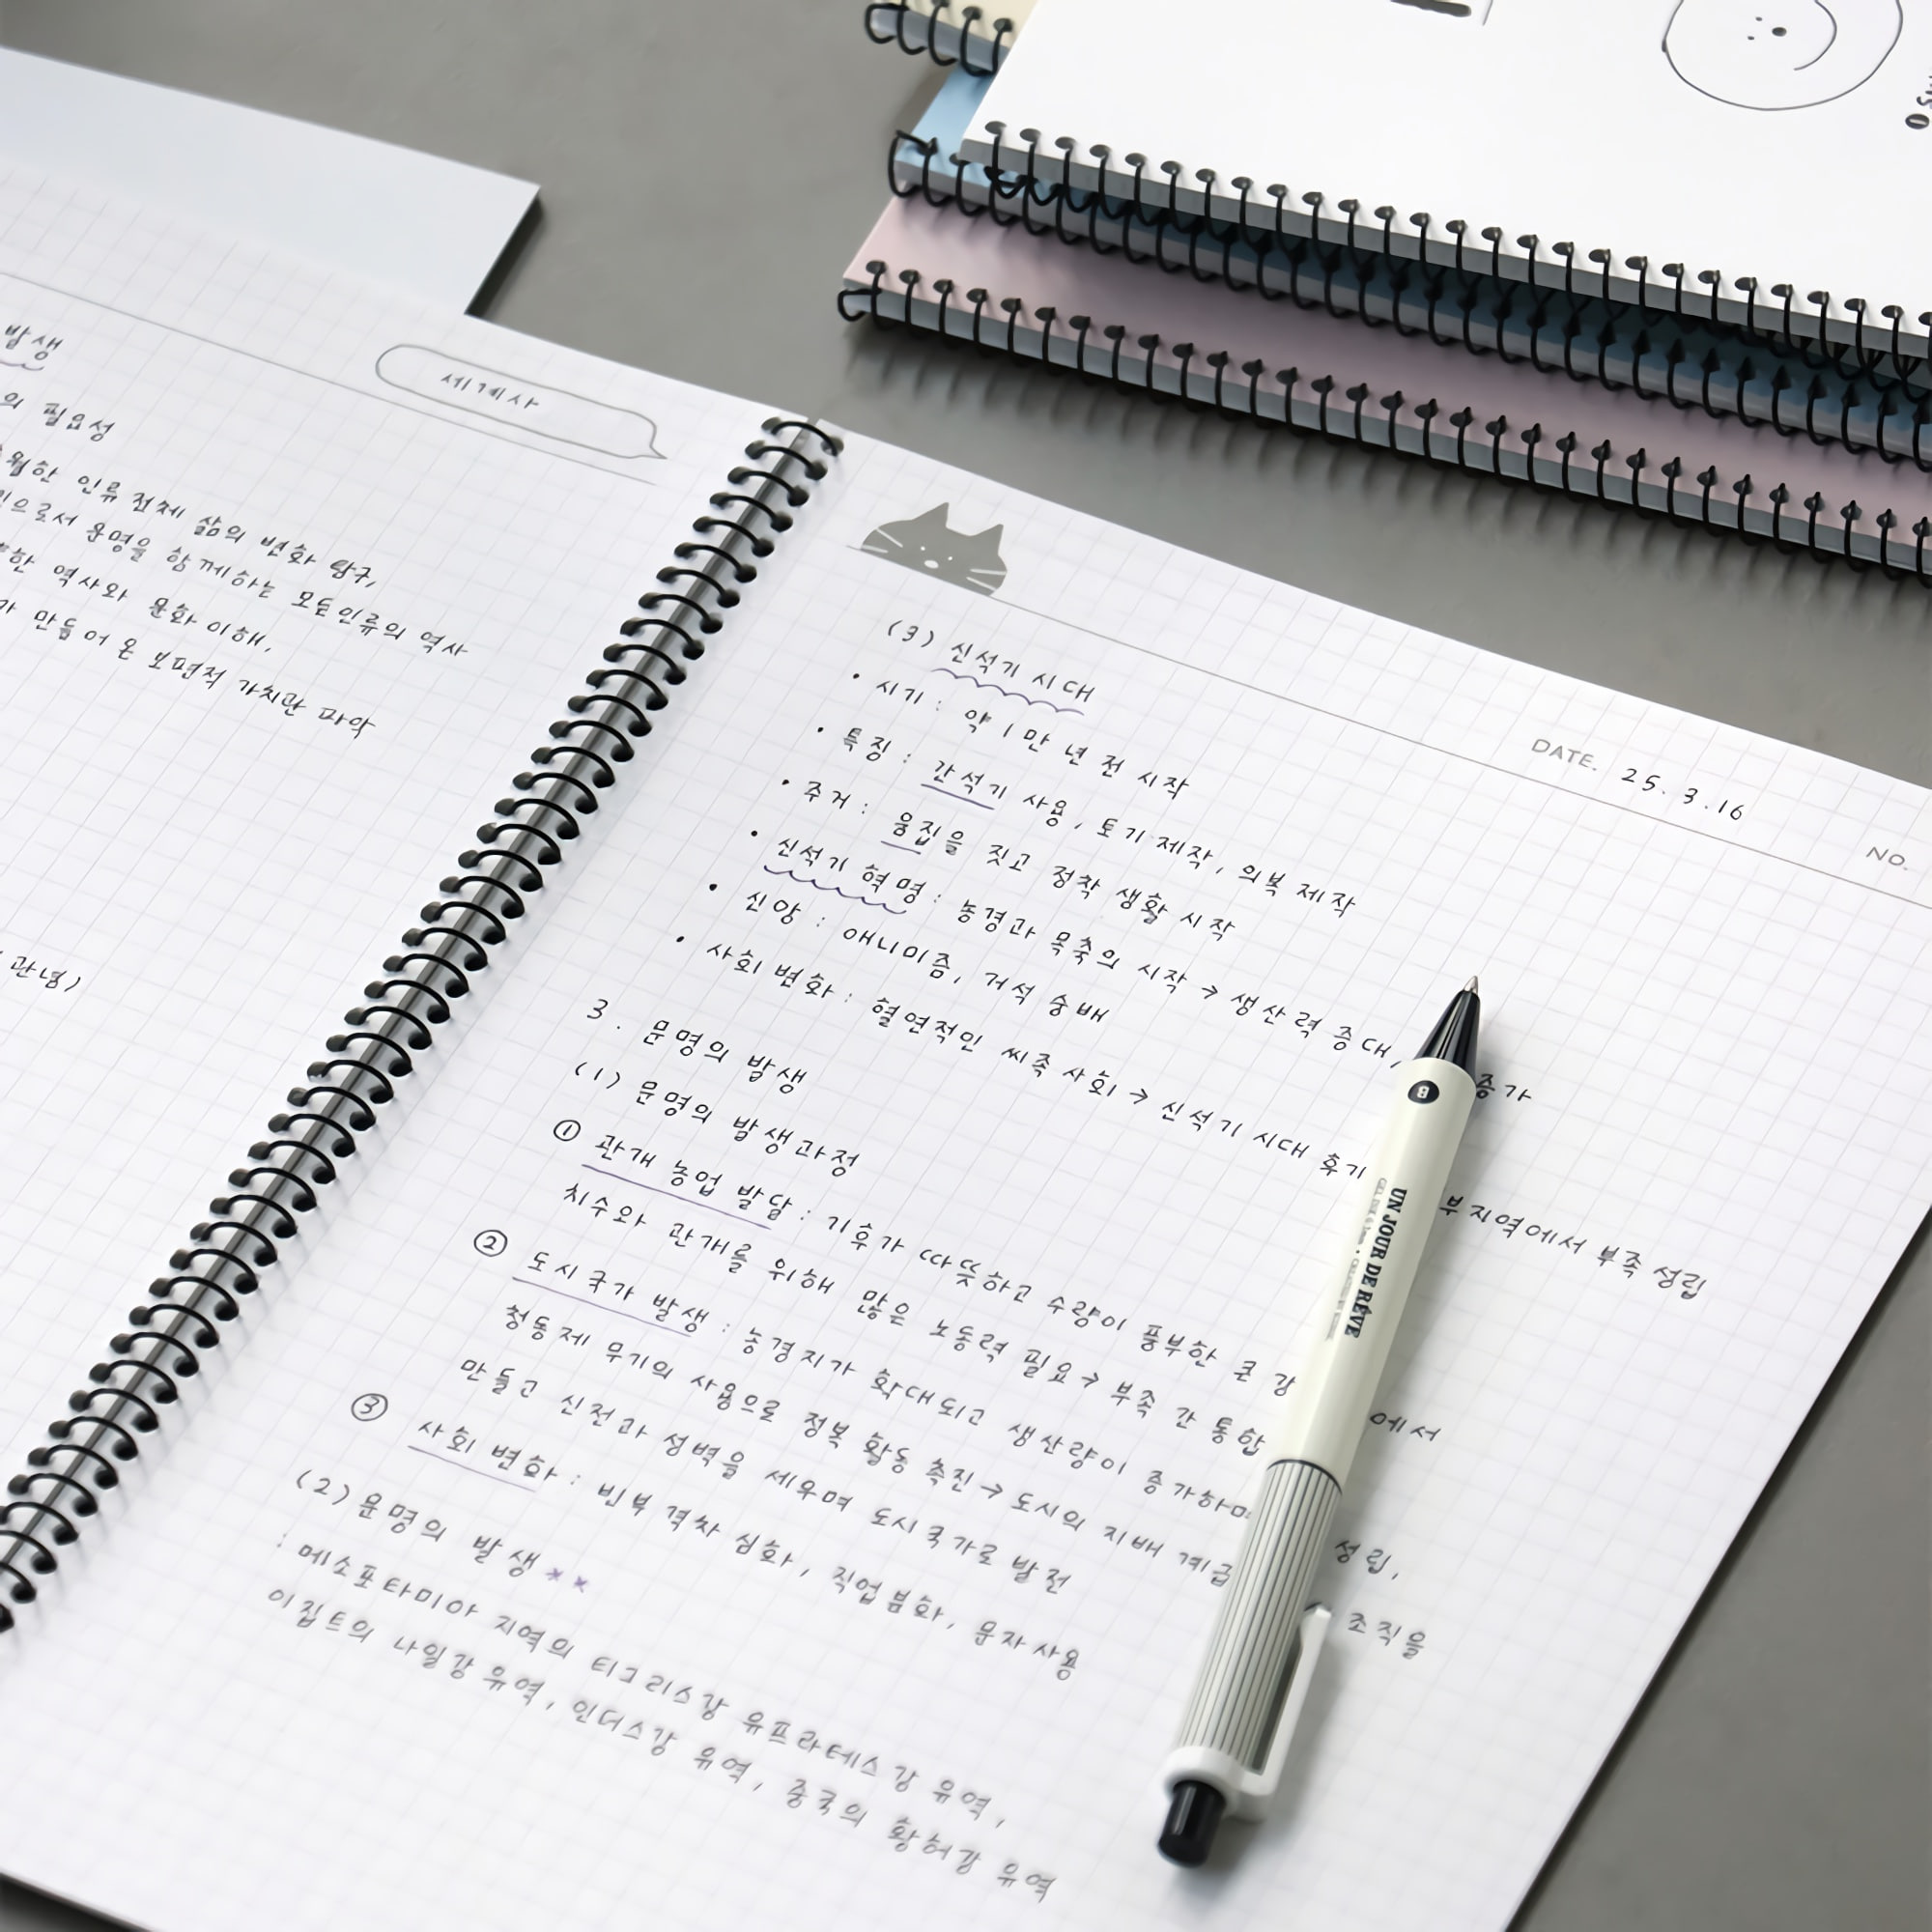 발생
의 필요성
월한 인류 전체 삶의 변화 탐구,
으로서 운명을 함께하는 모든 인류의 역사
한 역사와 문화 이해,
만들어 온 보편적 가치관 파악
관념)
세계사
DATE. 25. 3. 16
NO.
(3) 신석기 시대
• 시기 : 약 1만 년 전 시작
• 특징 : 간석기 사용, 토기 제작, 의복 제작
• 주거 : 움집을 짓고 정착 생활 시작
• 신석기 혁명 : 농경과 목축의 시작 → 생산력 증대, 증가
• 신앙 : 애니미즘, 거석 숭배
• 사회 변화 : 혈연적인 씨족 사회 → 신석기 시대 후기 부지역에서 부족 성립
3. 문명의 발생
(1) 문명의 발생과정
① 관개 농업 발달 : 기후가 따뜻하고 수량이 풍부한 큰 강 에서
치수와 관개를 위해 많은 노동력 필요 → 부족 간 통합
② 도시 국가 발생 : 농경지가 확대되고 생산량이 증가하며 성립,
청동제 무기의 사용으로 정복 활동 촉진 → 도시의 지배 계급 조직을
만들고 신전과 성벽을 세우며 도시국가로 발전
③ 사회 변화 : 빈부 격차 심화, 직업 분화, 문자 사용
(2) 문명의 발생 **
: 메소포타미아 지역의 티그리스강 유프라테스강 유역,
이집트의 나일강 유역, 인더스강 유역, 중국의 황허강 유역
UN JOUR DE RÊVE